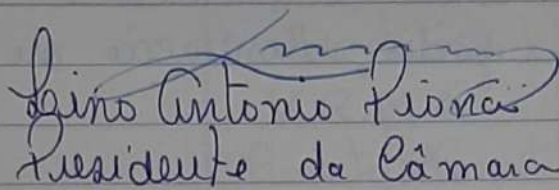 Lino Antonio Pionão
Presidente da Câmara